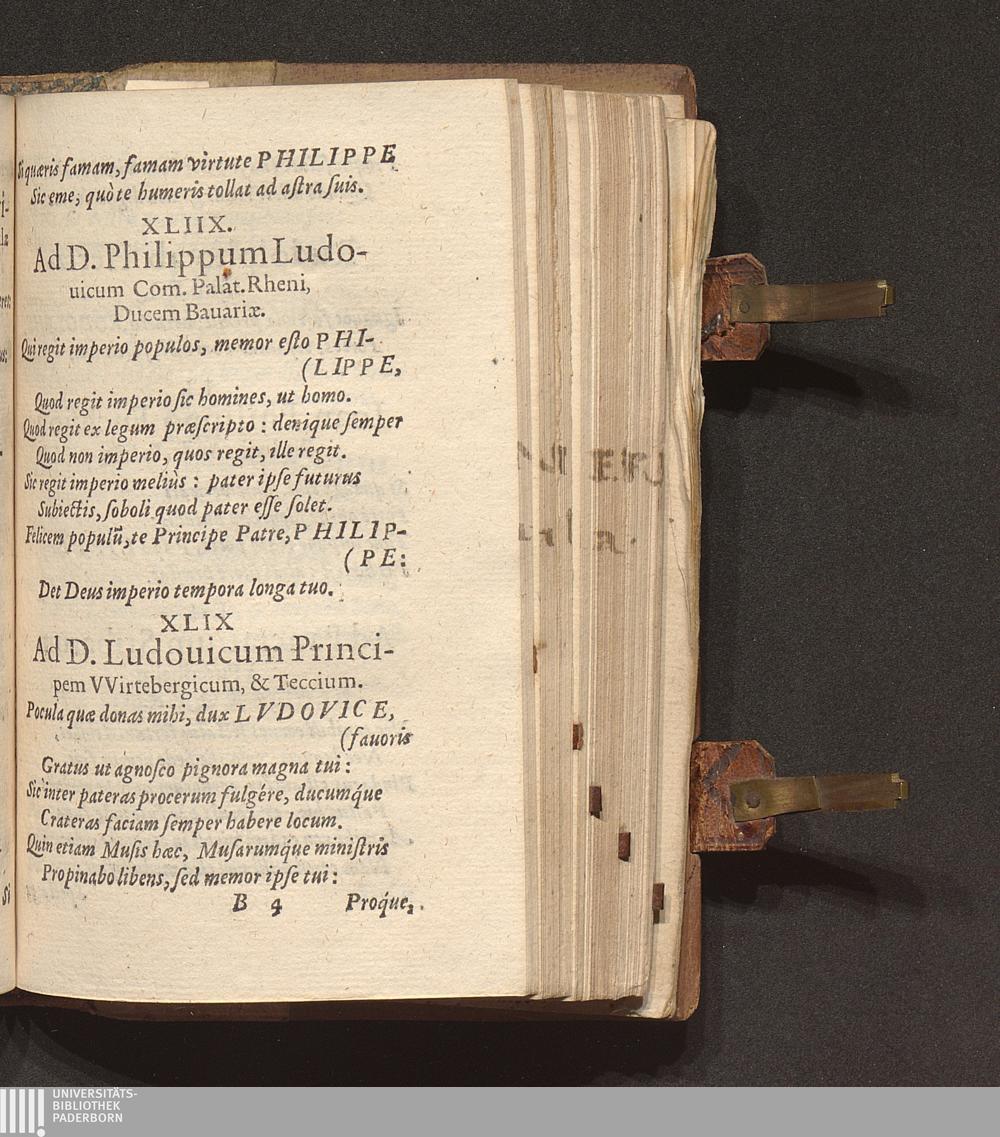 Si quæris famam, famam virtute PHILIPPE
Sic eme, quò te humeris tollat ad aſtra ſuis.
XLIIX.
Ad D. Philippum Ludo-
uicum Com. Palat. Rheni,
Ducem Bauariæ.
Qui regit imperio populos, memor eſto PHI-
(LIPPE,
Quod regit imperio ſic homines, ut homo.
Quod regit ex legum præſcripto : denique ſemper
Quod non imperio, quos regit, ille regit.
Sic regit imperio meliùs : pater ipſe futurus
Subiectis, ſoboli quod pater eſſe ſolet.
Felicem populũ, te Principe Patre, PHILIP-
(PE:
Det Deus imperio tempora longa tuo.
XLIX
Ad D. Ludouicum Princi-
pem VVirtebergicum, & Teccium.
Pocula quæ donas mihi, dux LVDOVICE,
(fauoris
Gratus ut agnoſco pignora magna tui :
Sic inter pateras procerum fulgére, ducumq́ue
Crateras faciam ſemper habere locum.
Quin etiam Muſis hæc, Muſarumq́ue miniſtris
Propinabo libens, ſed memor ipſe tui :
B 4 Proq́ue,
UNIVERSITÄTS-
BIBLIOTHEK
PADERBORN